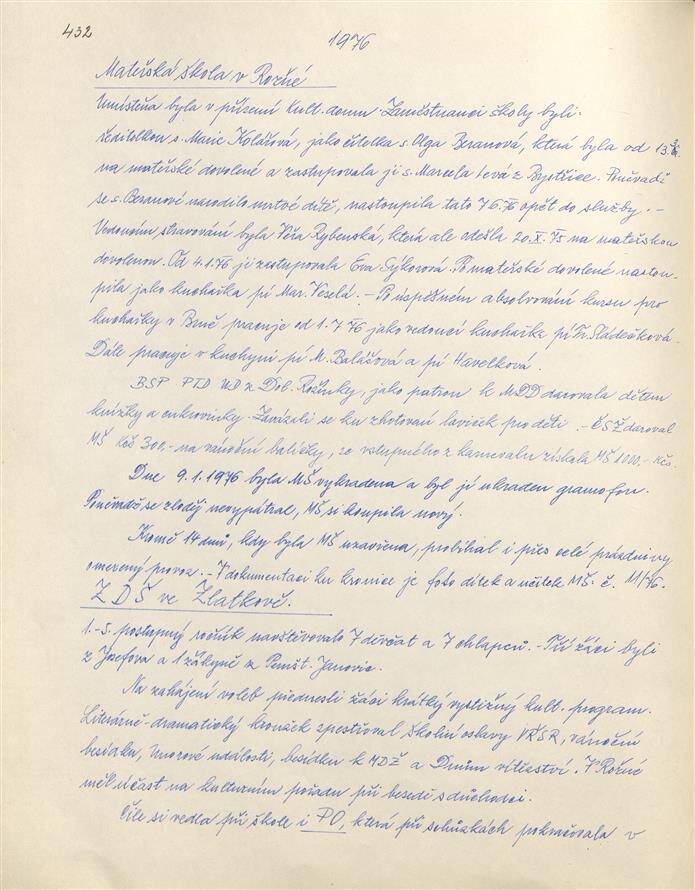 432
1976
Mateřská škola v Rožné
Umístěna byla v přízemí kult. domu. Zaměstnanci školy byli:
ředitelkou s. Marie Kolářová, jako učitelka s. Olga Beranová, která byla od 13.
na mateřské dovolené a zastupovala ji s. Marcela Levá z Bystřice. Poněvadž
se s. Beranové narodilo mrtvé dítě, nastoupila tato 7.6.76 opět do služby. -
Vedoucím stravování byla Věra Rybenská, která ale odešla 20.X.75 na mateřskou
dovolenou. Od 4.1.76 ji zastupovala Eva Sýkorová. Po mateřské dovolené nastou-
pila jako kuchařka pí Mar. Veselá. - Po úspěšném absolvování kursu pro
kuchařky v Brně pracuje od 1.7.76 jako vedoucí kuchařka pí Fr. Sládečková.
Dále pracuje v kuchyni pí M. Balášová a pí Havelková.
BSP PTD UD z Dol. Rožínky, jako patron k MDD darovala dětem
knížky a cukrovinky. Zavázali se ku zhotovení laviček pro děti. - ČSŽ daroval
MŠ Kčs 300,- na vánoční balíčky, ze vstupného z karnevalu získala MŠ 1000,- Kčs.
Dne 9.1.1976 byla MŠ vykradena a byl jí ukraden gramofon.
Poněvadž se zloděj nevypátral, MŠ si koupila nový.
Kromě 14 dnů, kdy byla MŠ uzavřena, probíhal i přes celé prázdniny
omezený provoz. - V dokumentaci ku kronice je foto dítek a učitek MŠ. č. 11/76.
ZDŠ ve Zlatkově.
1.-5. postupný ročník navštěvovalo 7 děvčat a 7 chlapců. - Tři žáci byli
z Josefova a 1 žákyně z Pernšt. Janovic.
Na zahájení voleb přednesli žáci krátký vystižný kult. program.
Literárně-dramatický kroužek zpestřoval školní oslavy VŘSR, vánoční
besídku, Únorové události, besídku k MDŽ a Dnům vítězství. V Rožné
měl účast na kulturním pořadu při besedě s důchodci.
Čile si vedla při škole i PO, která při schůzkách pokračovala v